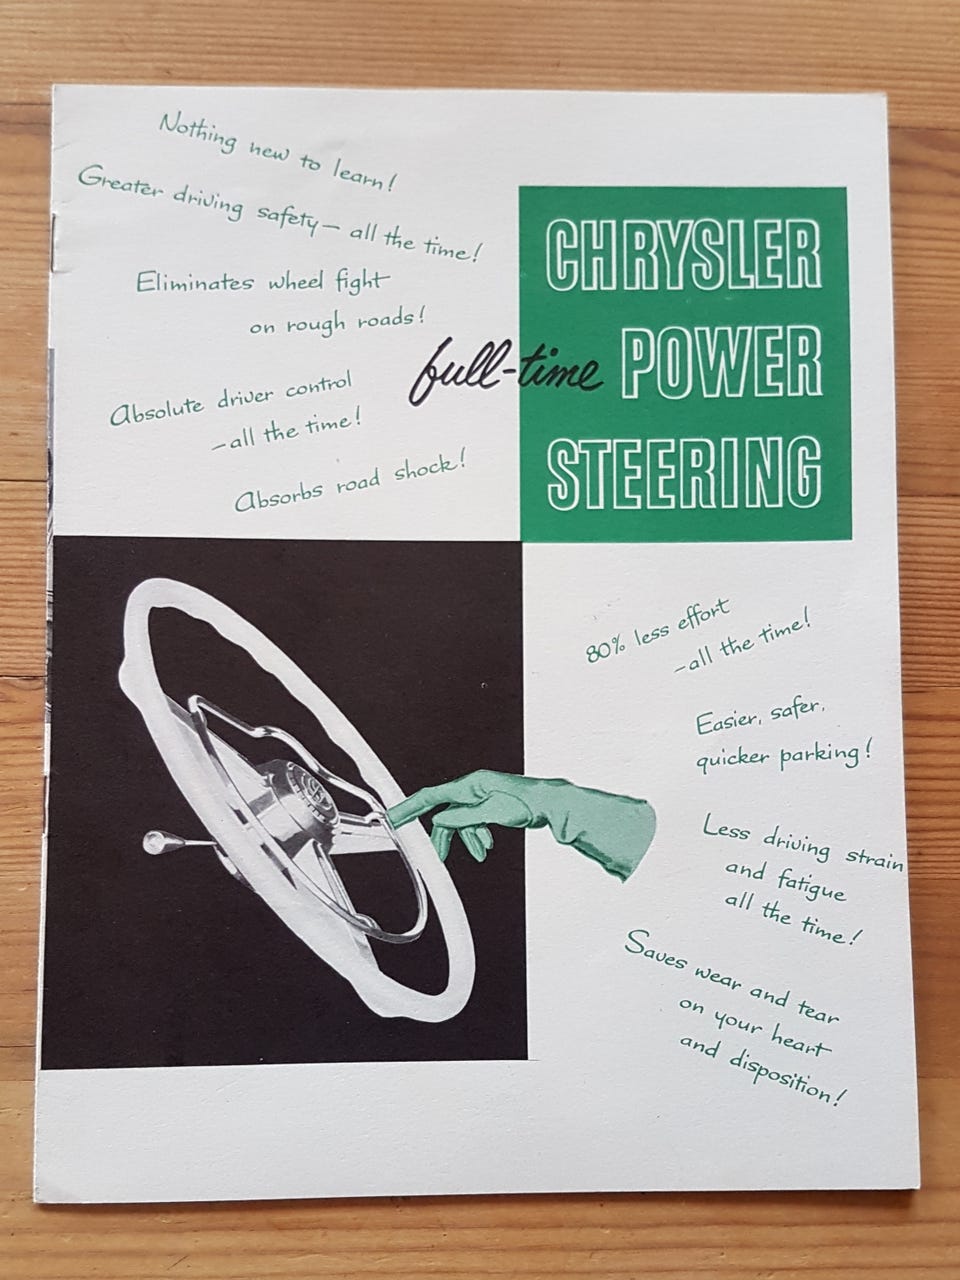 Nothing new to learn!
Greater driving safety — all the time!
Eliminates wheel fight
on rough roads!
Absolute driver control
—all the time!
Absorbs road shock!
CHRYSLER
full-time POWER
STEERING
80% less effort
—all the time!
Easier, safer,
quicker parking!
Less driving strain
and fatigue
all the time!
Saves wear and tear
on your heart
and disposition!